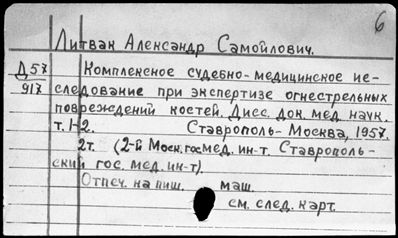 6
Литвак Александр Самойлович.
Д57 Комплексное судебно-медицинское ис-
917 следование при экспертизе огнестрельных
повреждений костей. Дисс. док. мед. наук.
т. 1-2. Ставрополь-Москва, 1957.
2т. (2-й Моск. гос. мед. ин-т. Ставрополь-
ский гос. мед. ин-т).
Отпеч. на пиш. маш.
см. след. карт.